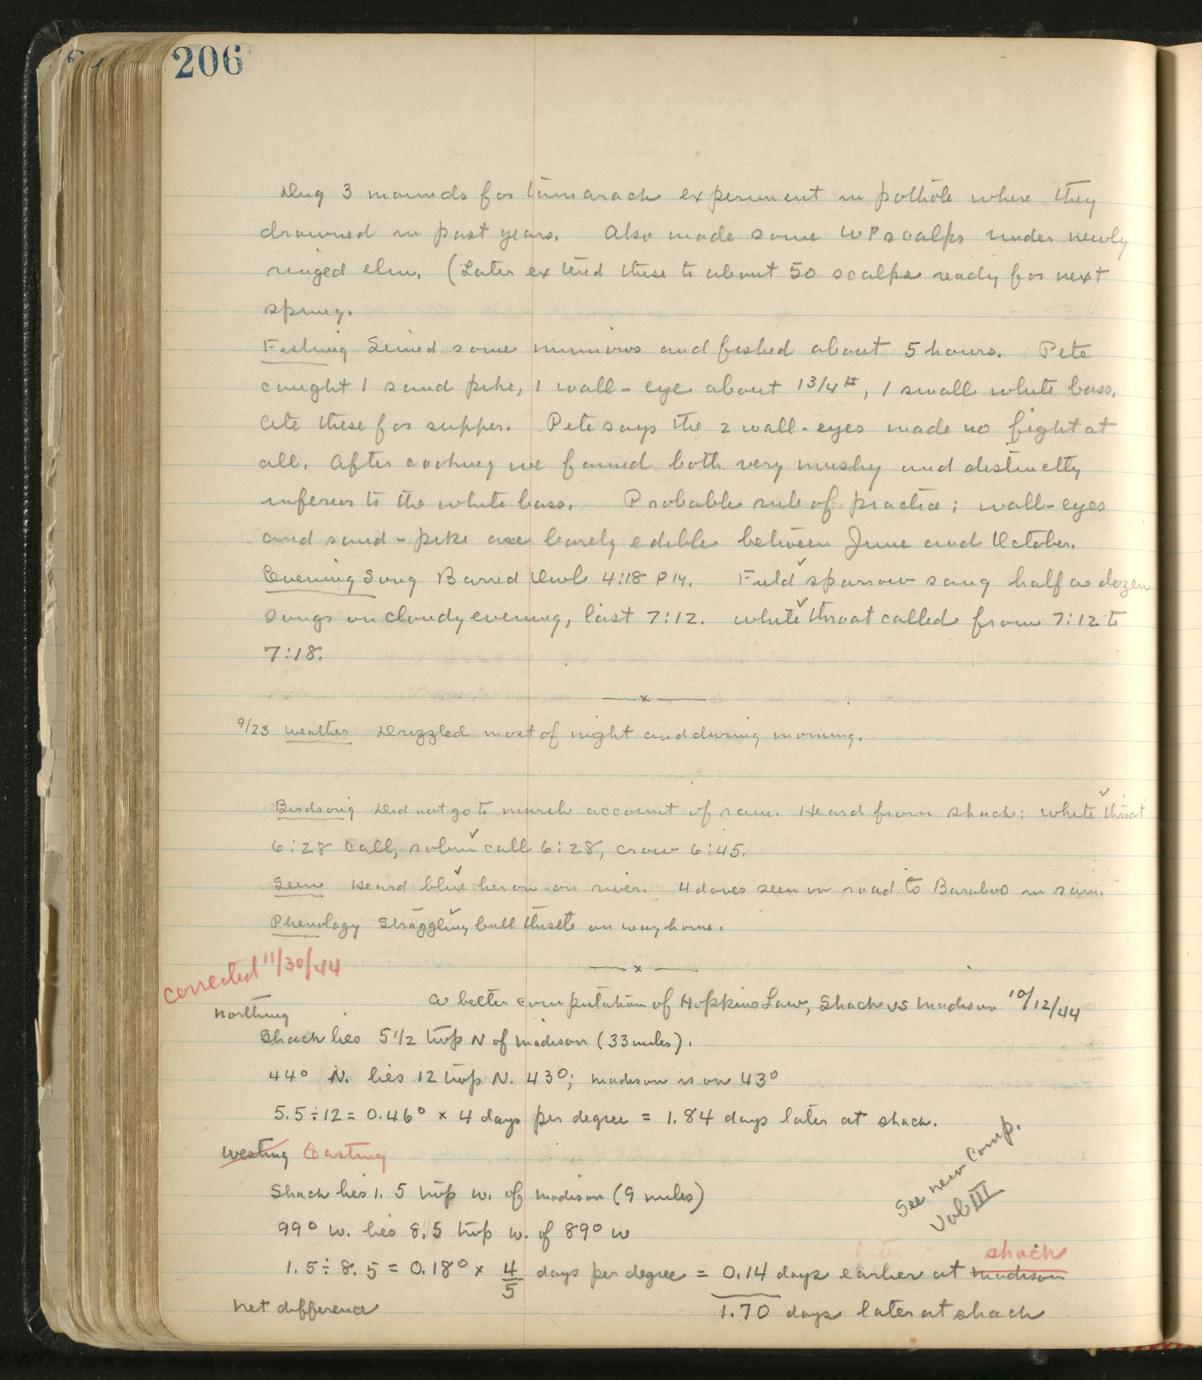 206
Dug 3 mounds for tamarack experiment in pothole where they
drowned in past years. Also made some WP scalps under newly
ringed elm. (Later extend these to about 50 scalps ready for next
spring.
Fishing Seined some minnows and fished about 5 hours. Pete
caught 1 sand pike, 1 wall-eye about 1 3/4 #, 1 small white bass.
Ate these for supper. Pete says the 2 wall-eyes made no fight at
all. After cooking we found both very mushy and distinctly
inferior to the white bass. Probable rule of practice; wall-eyes
and sand-pike are barely edible between June and October.
Evening Song Barred Owl 4:18 PM. Field ✓ sparrow sang half a dozen
songs on cloudy evening, last 7:12. White ✓ throat called from 7:12 to
7:18.
—x—
9/23 Weather Drizzled most of night and during morning.
Birdsong Did not go to marsh account of rain. Heard from shack: white ✓ throat
6:28 call, robin ✓ call 6:28, crow 6:45.
Seen Heard blue ✓ heron on river. 4 doves seen on road to Baraboo in rain.
Phenology Straggling ✓ bull thistle on way home.
—x—
corrected 11/30/44
A better computation of Hopkins Law, Shack vs Madison 10/12/44
Northing
Shack lies 5 1/2 twp N of Madison (33 miles).
44° N. lies 12 twp N. 43°; Madison is on 43°
5.5 ÷ 12 = 0.46° × 4 days per degree = 1.84 days later at shack.
Westing Easting
See new Comp. Vol III
Shack lies 1.5 twp w. of Madison (9 miles)
99° w. lies 8.5 twp w. of 89° w
later shack
1.5 ÷ 8.5 = 0.18° × 4/5 days per degree = 0.14 days earlier at Madison
Net difference 1.70 days later at shack